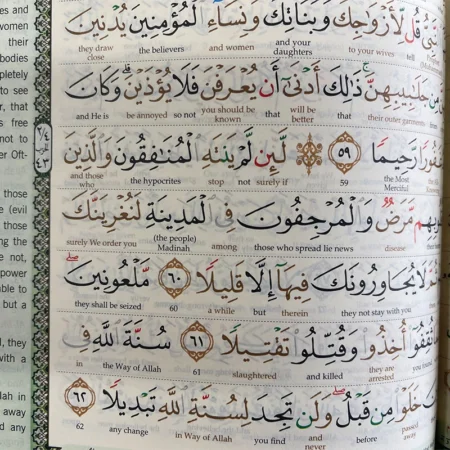 قُل لِّأَزْوَاجِكَ وَبَنَاتِكَ وَنِسَاءِ الْمُؤْمِنِينَ يُدْنِينَ
they draw close the believers and women and your daughters to your wives tell
مِن جَلَابِيبِهِنَّ ۚ ذَٰلِكَ أَدْنَىٰ أَن يُعْرَفْنَ فَلَا يُؤْذَيْنَ ۗ وَكَانَ
and He is be annoyed so not you should be known that will be better that their outer garments
غَفُورًا رَّحِيمًا ٥٩ لَّئِن لَّمْ يَنتَهِ الْمُنَافِقُونَ وَالَّذِينَ
and those who the hypocrites stop not surely if 59 the Most Merciful
مَّرَضٌ وَالْمُرْجِفُونَ فِي الْمَدِينَةِ لَنُغْرِيَنَّكَ
surely We order you (the people) Madinah among those who spread lie news disease
لَا يُجَاوِرُونَكَ فِيهَا إِلَّا قَلِيلًا ٦٠ مَّلْعُونِينَ ۖ
they shall be seized 60 a while but therein they not stay with you
ثُقِفُوا أُخِذُوا وَقُتِّلُوا تَقْتِيلًا ٦١ سُنَّةَ اللَّهِ فِي
in the Way of Allah 61 slaughtered and killed they are arrested
خَلَوْا مِن قَبْلُ ۖ وَلَن تَجِدَ لِسُنَّةِ اللَّهِ تَبْدِيلًا ٦٢
62 any change in Way of Allah you find and never before passed away
es and
women
their
bodies
pletely
to see
r, that
s free
not to
er Oft-
those
e (evil
those
g the
e not,
power
able to
but a
d, they
with a
llah in
away
d any